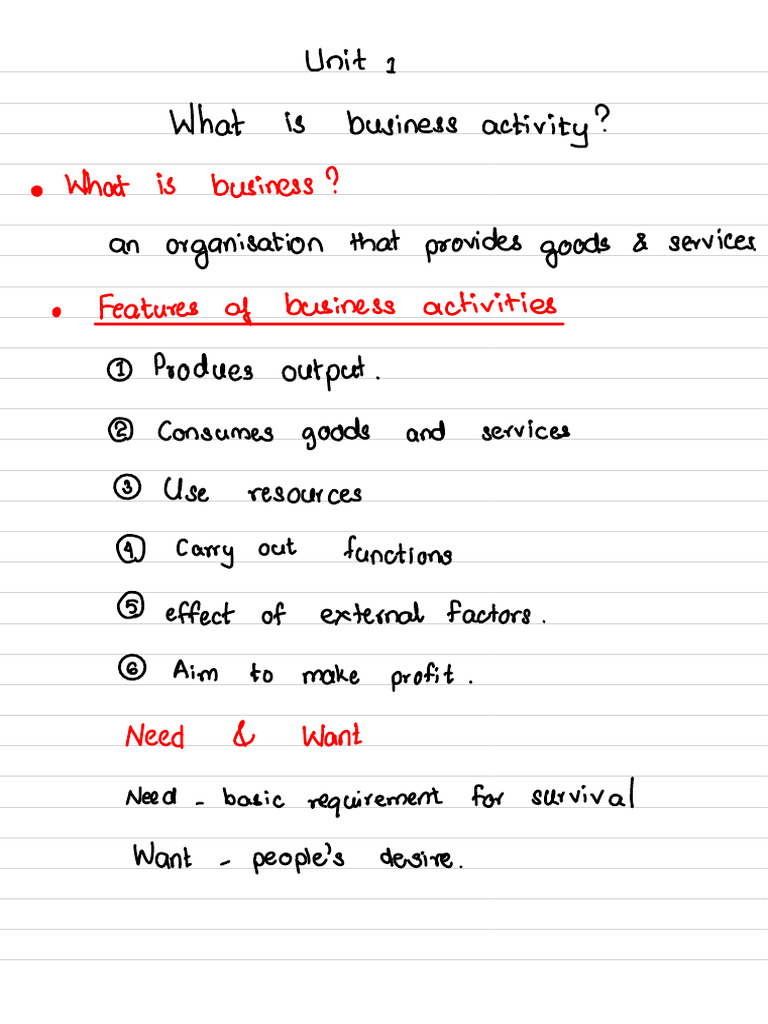 Unit 1
What is business activity?
• What is business?
an organisation that provides goods & services.
• Features of business activities
① Produes output.
② Consumes goods and services
③ Use resources
④ Carry out functions
⑤ effect of external factors.
⑥ Aim to make profit.
Need & Want
Need - basic requirement for survival
Want - people's desire.